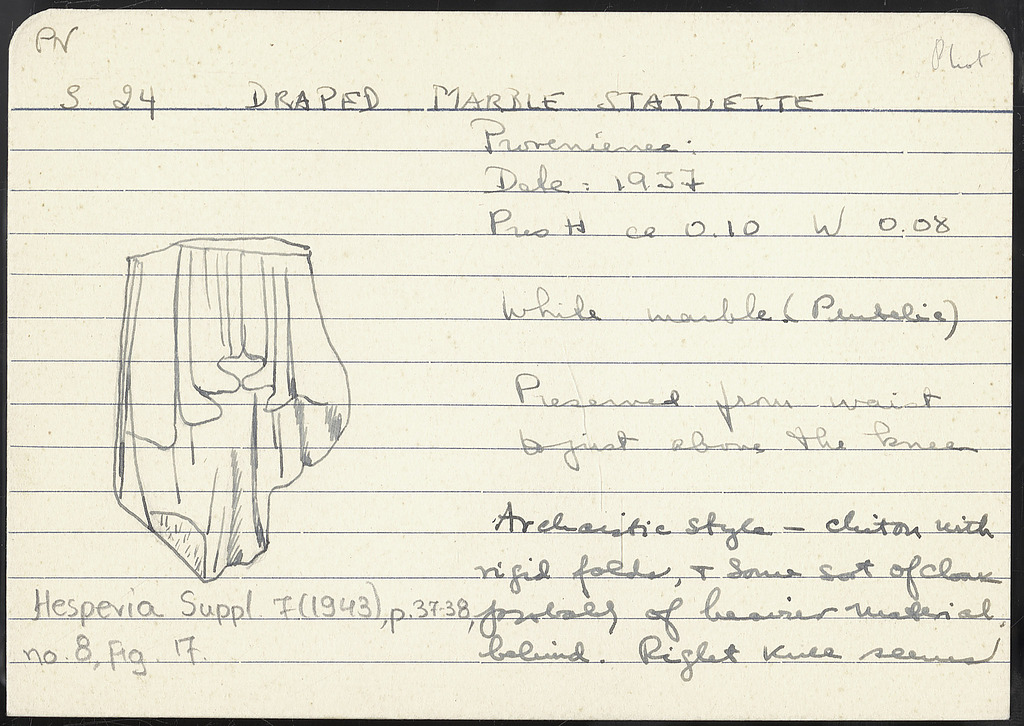 PN
Phot
S 24 DRAPED MARBLE STATUETTE
Provenience:
Date: 1937
Pres H ca 0.10 W 0.08
White marble (Pentelic)
Preserved from waist
to just above the knee
Archaistic style – chiton with
rigid folds, + some sort of cloak
probably of heavier material,
behind. Right knee seems
Hesperia Suppl. 7(1943), p.37-38,
no. 8, Fig. 17.